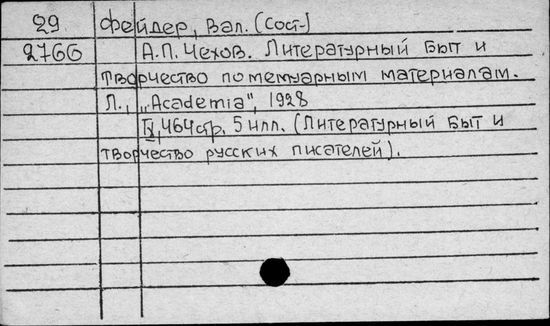 29 Фейдер, Вал. (Сост.)
2766 А.П. Чехов. Литературный быт и
творчество по мемуарным материалам.
Л., „Academia", 1928
IX, 464 стр. 5 илл. (Литературный быт и
творчество русских писателей).